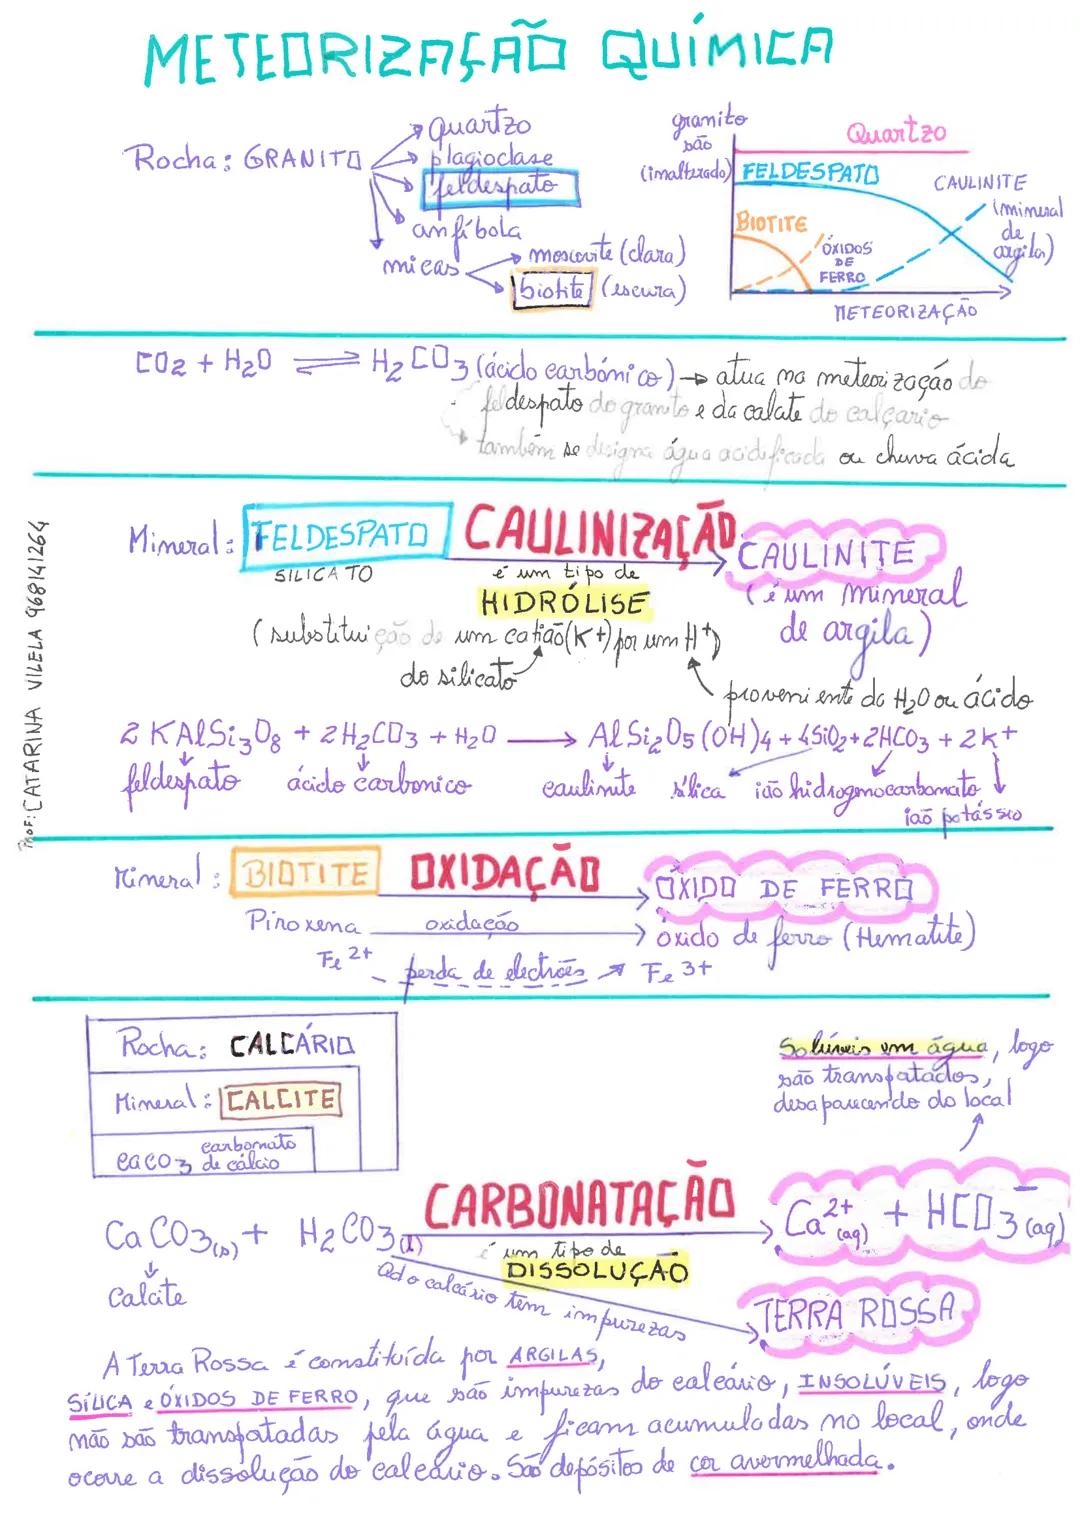 METEORIZAÇÃO QUÍMICA
Rocha: GRANITO
quartzo
plagioclase
feldespato
anfíbola
micas
moscovite (clara)
biotite (escura)
granito
são
(inalterado)
Quartzo
FELDESPATO
BIOTITE
ÓXIDOS
DE
FERRO
CAULINITE
(mineral
de
argila)
METEORIZAÇÃO
CO2 + H2O ⇌ H2CO3 (ácido carbónico) → atua na meteorização do
feldespato do granito e da calcite do calcário
também se designa água acidificada ou chuva ácida
Mineral: FELDESPATO CAULINIZAÇÃO CAULINITE
SILICATO
é um tipo de
HIDRÓLISE
(é um mineral
de argila)
(substituição de um catião (K+) por um H+)
do silicato
proveniente da H2O ou ácido
2 KAlSi3O8 + 2H2CO3 + H2O → AlSi2O5(OH)4 + 4SiO2 + 2HCO3 + 2K+
feldespato ácido carbonico caulinite sílica ião hidrogenocarbonato
ião potássio
Mineral: BIOTITE OXIDAÇÃO ÓXIDO DE FERRO
Piroxena oxidação óxido de ferro (Hematite)
Fe2+ perda de electrões Fe3+
Rocha: CALCÁRIO
Mineral: CALCITE
caco3 carbonato
de cálcio
Solúveis em água, logo
são transpatados,
desaparecendo do local
CaCO3(s) + H2CO3(l) CARBONATAÇÃO Ca2+(aq) + HCO3-(aq)
Calcite
é um tipo de
DISSOLUÇÃO
Qd o calcário tem impurezas
TERRA ROSSA
A Terra Rossa é constituída por ARGILAS,
SÍLICA e ÓXIDOS DE FERRO, que são impurezas do calcário, INSOLÚVEIS, logo
não são transpatadas pela água e ficam acumuladas no local, onde
ocorre a dissolução do calcário. São depósitos de cor avermelhada.
PROF: CATARINA VILELA 968141264